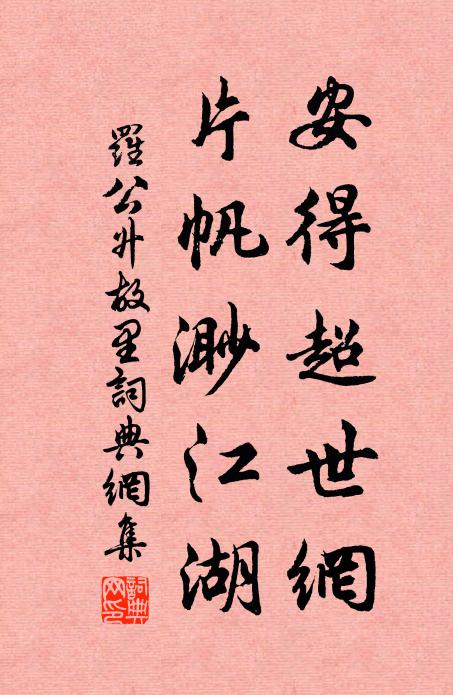 安得超世網
片帆渺江湖
羅公升故里詞典網集
詞典
网印